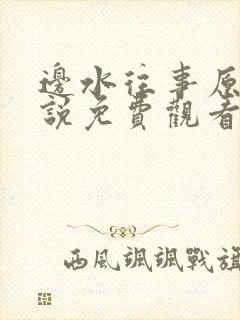 邊水往事原
說免費觀看
西風颯颯戰旗